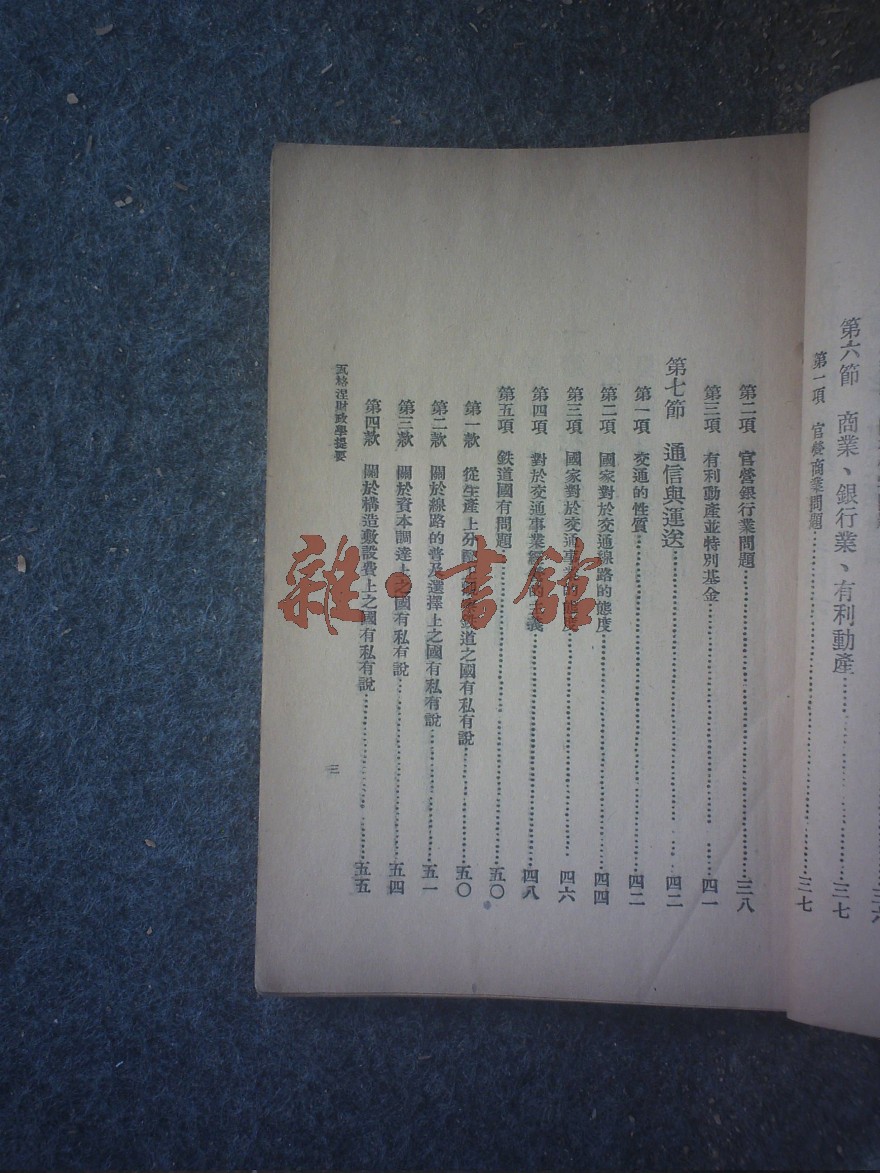 第六節 商業、銀行業、有利動產……三七
第一項 官營商業問題……三七
第二項 官營銀行業問題……三八
第三項 有利動產並特別基金……四一
第七節 通信與運送……四二
第一項 交通的性質……四二
第二項 國家對於交通線路的態度……四四
第三項 國家對於交通事業的態度……四六
第四項 對於交通事業經營的主義……四八
第五項 鉄道國有問題……五〇
第一款 從生產上分配上觀察鉄道之國有私有說……五〇
第二款 關於線路的普及選擇上之國有私有說……五一
第三款 關於資本調達上之國有私有說……五四
第四款 關於構造敷設費上之國有私有說……五五
瓦格涅財政學提要
三
雜·書館